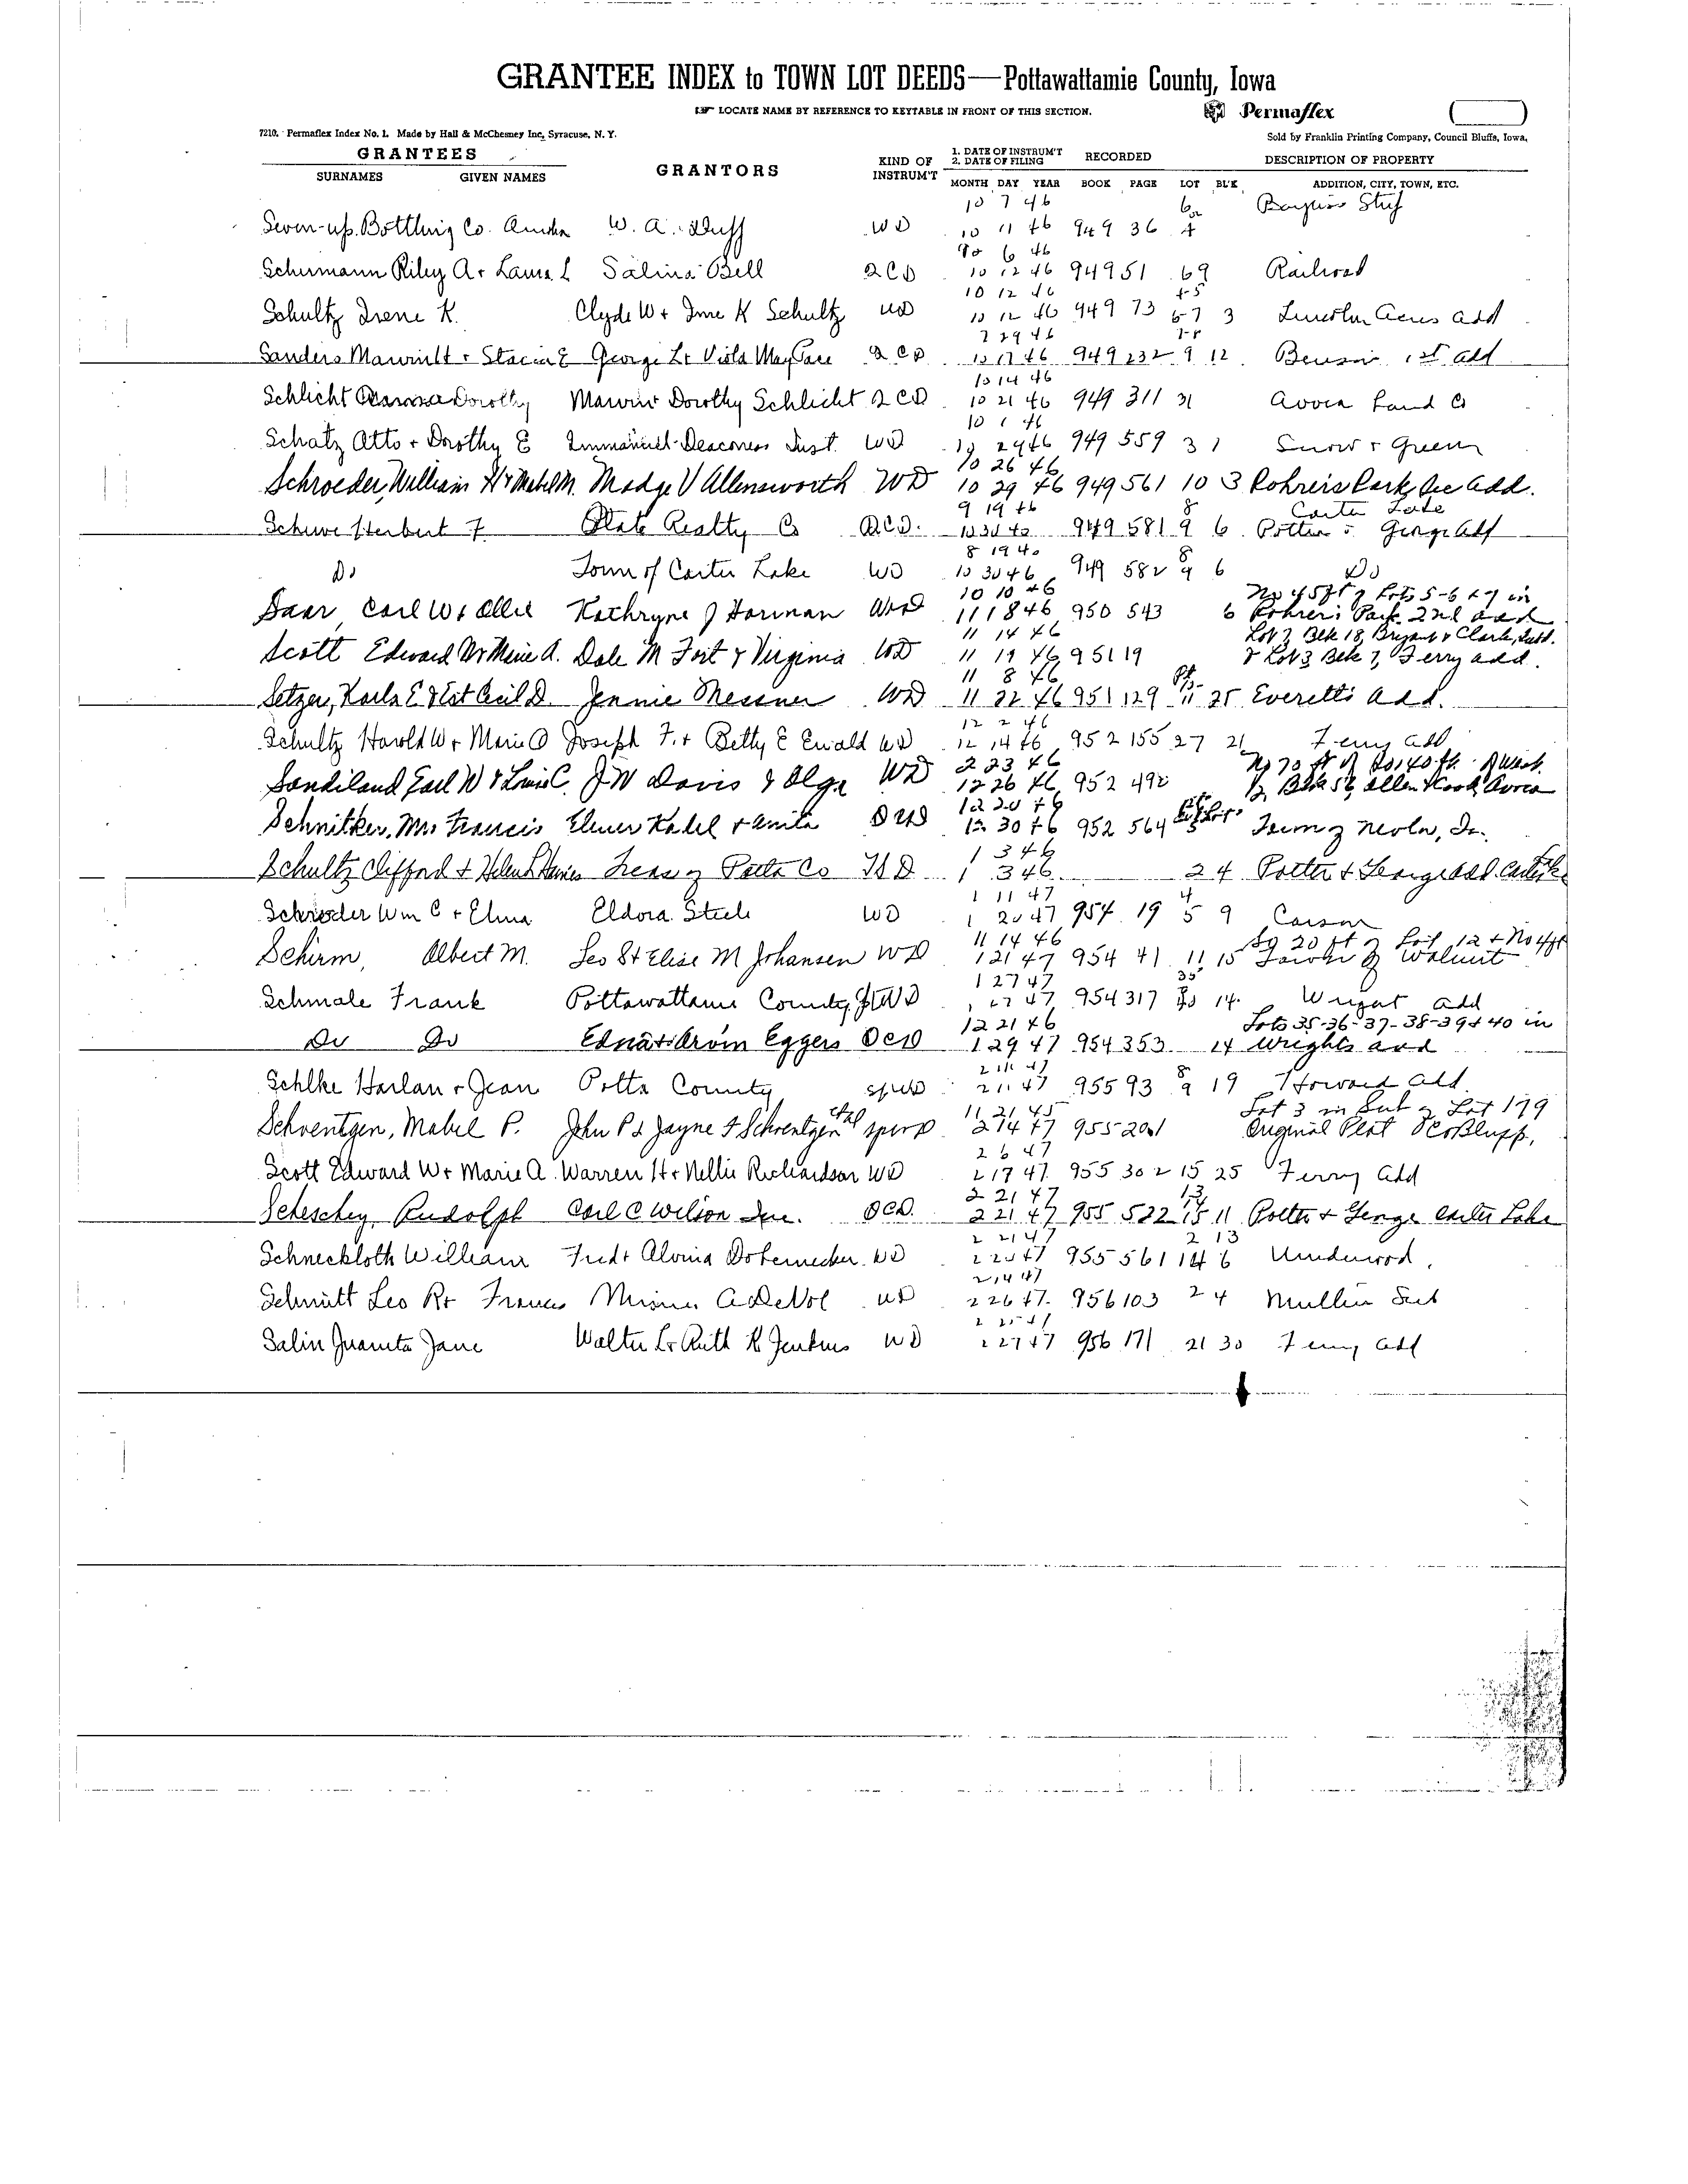 GRANTEE INDEX to TOWN LOT DEEDS—Pottawattamie County, Iowa
LOCATE NAME BY REFERENCE TO KEYTABLE IN FRONT OF THIS SECTION.
Permaflex
7210. Permaflex Index No. 1. Made by Hall & McChesney Inc, Syracuse, N. Y.
Sold by Franklin Printing Company, Council Bluffs, Iowa.
GRANTEES GRANTORS KIND OF INSTRUM'T 1. DATE OF INSTRUM'T 2. DATE OF FILING RECORDED DESCRIPTION OF PROPERTY
SURNAMES GIVEN NAMES MONTH DAY YEAR BOOK PAGE LOT BL'K ADDITION, CITY, TOWN, ETC.
10 7 46 6
Seven-up Bottling Co. W. A. Duff WD 10 11 46 949 36
6 46
Schumann Riley A + Laura L Salina Bell QCD 10 12 46 949 51 69 Railroad
10 12 46 45
Schultz Irene K. Clyde W + Irene K Schultz WD 10 12 46 949 73 67 3 Lincoln Acres add
7 29 46 7-8
Sanders George L + Viola May Pace QCD 10 17 46 949 232 9 12 Benson 1st add
10 14 46
Schlicht Dorothy Dorothy Schlicht QCD 10 21 46 949 311 31 Avoca Land Co
10 1 46
Schatz Otto + Dorothy E Immanuel Deaconess Inst. WD 10 29 46 949 559 3 1 Snow + Green
10 26 46
Schroeder, William H + Mabel M. Madge V Allensworth WD 10 29 46 949 561 10 3 Rohrer's Park add.
9 19 46 8 Carter Lake
Schuve Herbert F State Realty Co QCD. 949 581 9 6 Potter + George Add
8 19 40 8
Do Town of Carter Lake WD 10 30 46 949 582 9 6 Do
10 10 46 No 45 ft of Lots 5-6 + 7 in
Saar, Carl W + Allie Kathryne J Harman 11 18 46 950 543 6 Rohrer's Park 2nd add
11 14 46 Lot 7, Blk 18, Bryant & Clark, Subd.
Scott Edward W + Marie A. Dale M Fort & Virginia WD 11 19 46 951 19 & Lot 3 Blk 7, Ferry add.
11 8 46
Setzer, Karla E Jennie Messner WD 11 22 46 951 129 11 25 Everetts add.
12 2 46
Schultz Harold W + Marie O Joseph F. + Betty E Ewald WD 12 14 46 952 155 27 21 Ferry add
2 23 46 No 70 ft of So 140 ft of West
Sandiland Earl W & Lois C. J W Davis & Olga WD 12 26 46 952 492 1/2 Blk 56 Allen & Cook, Avoca
12 20 46
Schnitker, Mrs Francis Elmer Kahl + Anita 12 30 46 952 564 Town of Neola, Ia.
1 3 46
Schultz Clifford + Helen Treas of Potta Co TD 1 3 46 24 Potter + George add.
1 11 47 4
Schroder Wm C + Elma Eldora Steele WD 1 20 47 954 19 5 9 Carson
11 14 46 So 20 ft of Lot 12 + No 4 ft
Schirm, Albert M. Leo S + Elise M Johansen WD 1 21 47 954 41 11 15 Town of Walnut
1 27 47 35
Schmale Frank Pottawattamie County, 1 27 47 954 317 40 14 Wright add
12 21 46 Lots 35-36-37-38-39 & 40 in
Do Do Edna + Arvin Eggers QCD 1 29 47 954 353 14 Wrights add
2 11 47 8
Schlke Harlan + Jean Potta County 2 11 47 955 93 9 19 Howard add.
11 21 45 Lot 3 in Sub of Lot 179
Schventgen, Mabel P. John P & Jayne F Schventgen etal 2 14 47 955 201 Original Plat Co Bluffs,
2 6 47
Scott Edward W + Marie A. Warren H + Nellie Richardson WD 2 17 47 955 302 15 25 Ferry add
2 21 47 13 14
Scheschy, Rudolph Carl C Wilson QCD. 2 21 47 955 522 15 11 Potter + George Carter Lake
2 21 47 2 13
Schneckloth William Fred + Alvina Dobernecker WD 955 561 14 6 Underwood
2 14 47
Schmitt Leo R + Frances Minnie A DeVol WD 2 26 47 956 103 24 Mullin Sub
Salin Juanita Jane Walter L + Ruth K Jenkins WD 2 27 47 956 171 21 30 Ferry add